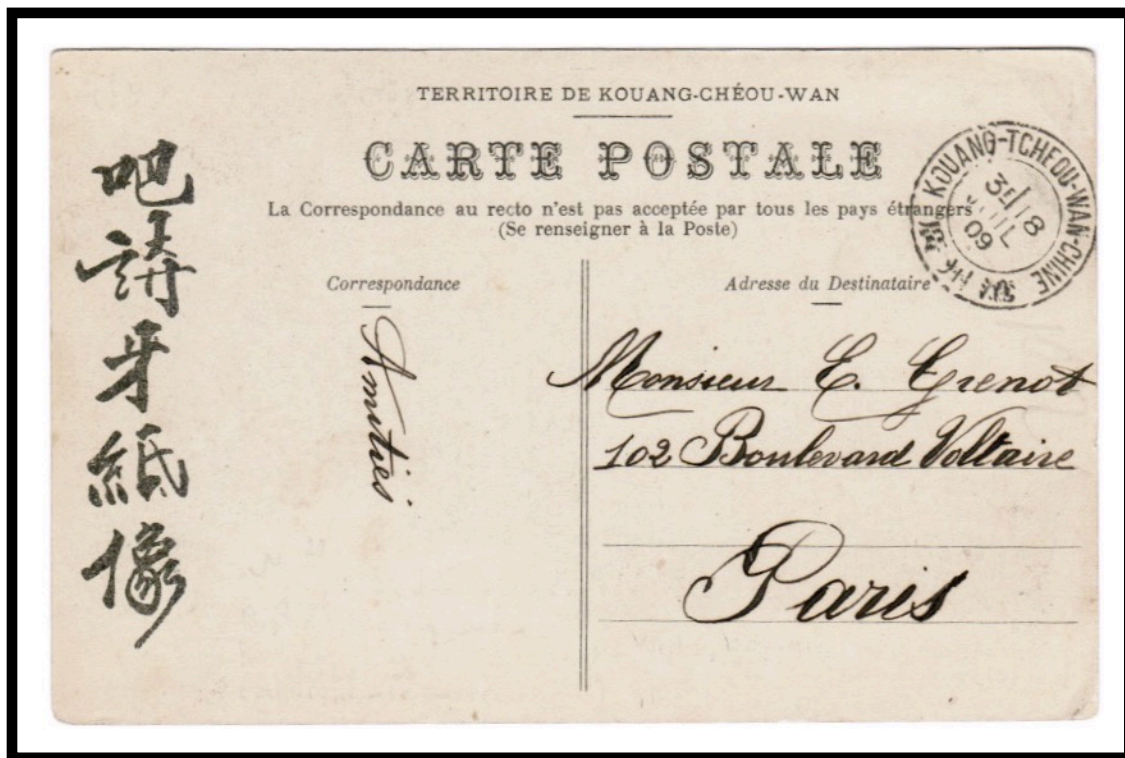 TERRITOIRE DE KOUANG-CHÉOU-WAN
CARTE POSTALE
La Correspondance au recto n'est pas acceptée par tous les pays étrangers
(Se renseigner à la Poste)
吧請牙紙像
Correspondance
Amitiés
Adresse du Destinataire
Monsieur E. Grenot
102 Boulevard Voltaire
Paris
KOUANG-TCHEOU-WAN-CHINE
09